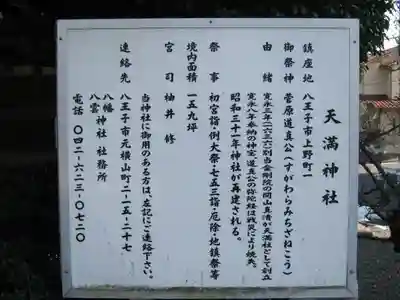 天満神社
鎮座地 八王子市上野町一
御祭神 菅原道真公(すがわらみちざねこう)
由緒 寛永三年(一六二六)別当金剛院の開山真清が天満社として創立
寛永八年奉納の神宝 道真公の弥陀経は戦災により焼失。
昭和三十一年神社が再建される。
祭事 初宮詣・例大祭・七五三詣・厄除・地鎮祭等
境内面積 一五九坪
宮司 紬井 修
当神社に御用のある方は、左記にご連絡下さい。
連絡先 八王子市元横山町二-一五-二十七
八幡
八雲 神社 社務所
電話 〇四二-六二三-〇七二〇